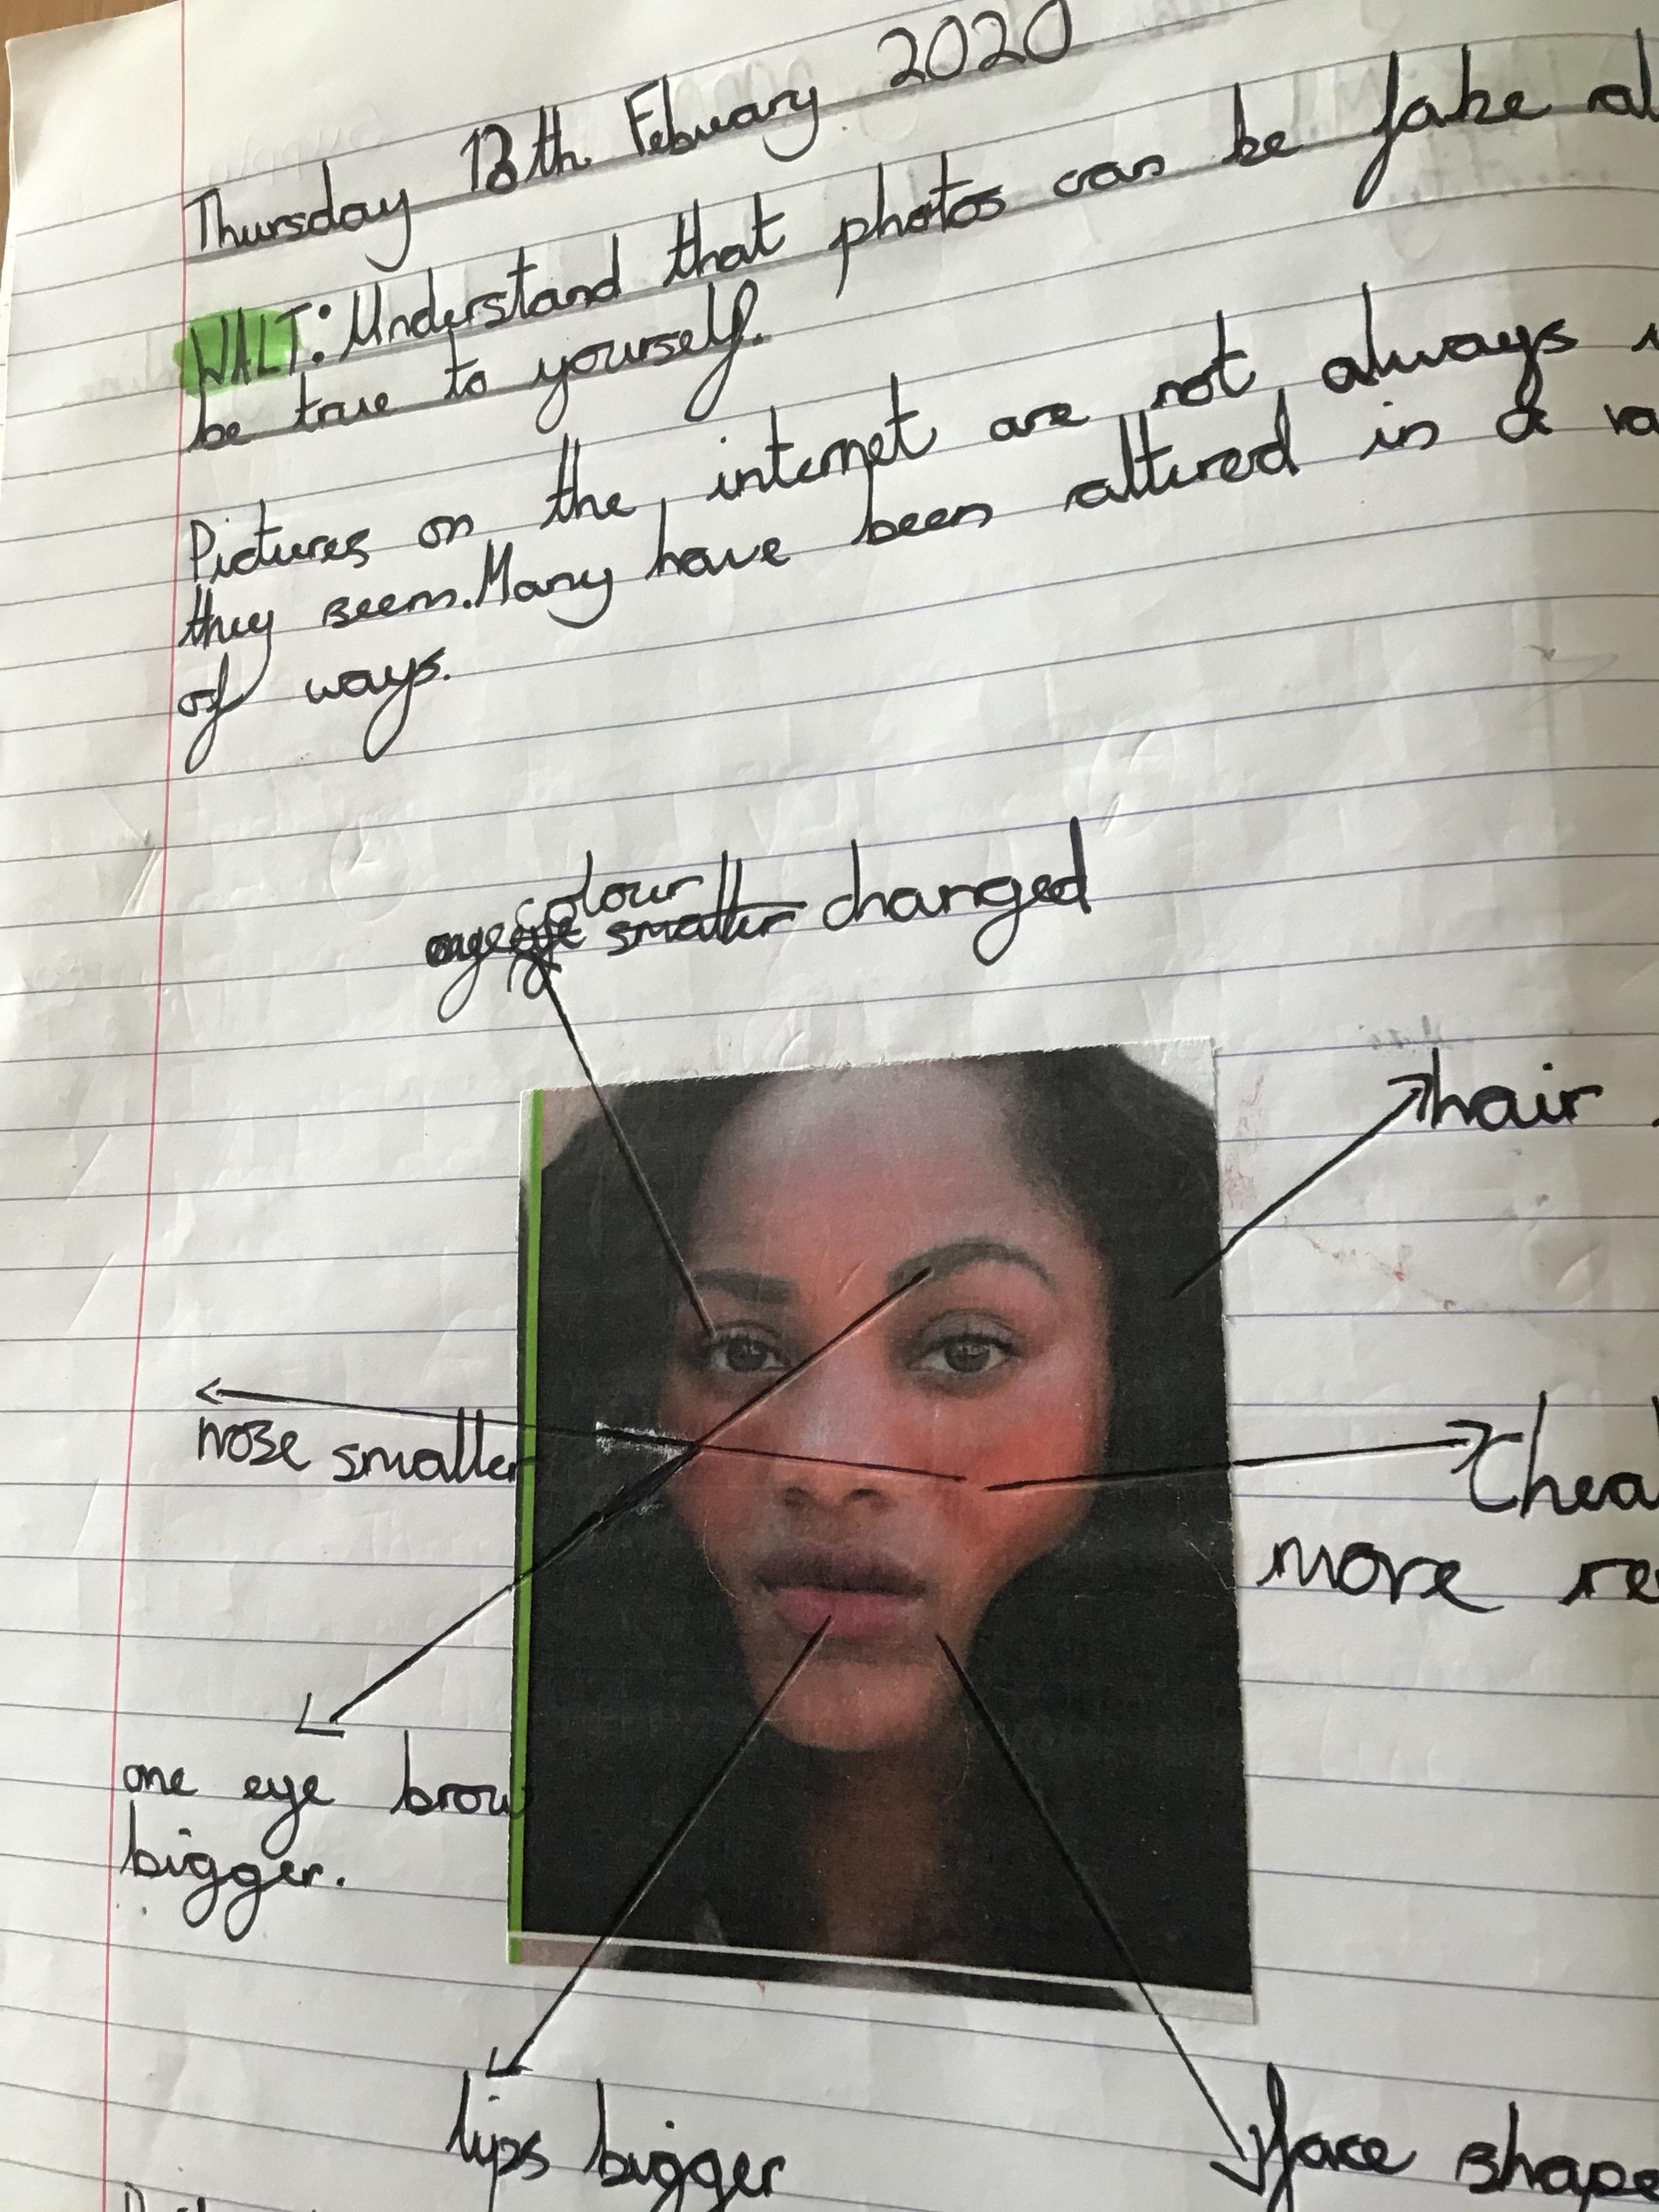 Thursday 13th Febuary 2020
WALT: Understand that photos can be fake
be true to yourself.
Pictures on the internet are not always
they seem. Many have been altured in a
of ways.
colour
eye smaller changed
hair
nose smaller
more
one eye brow
bigger.
lips bigger
face shape